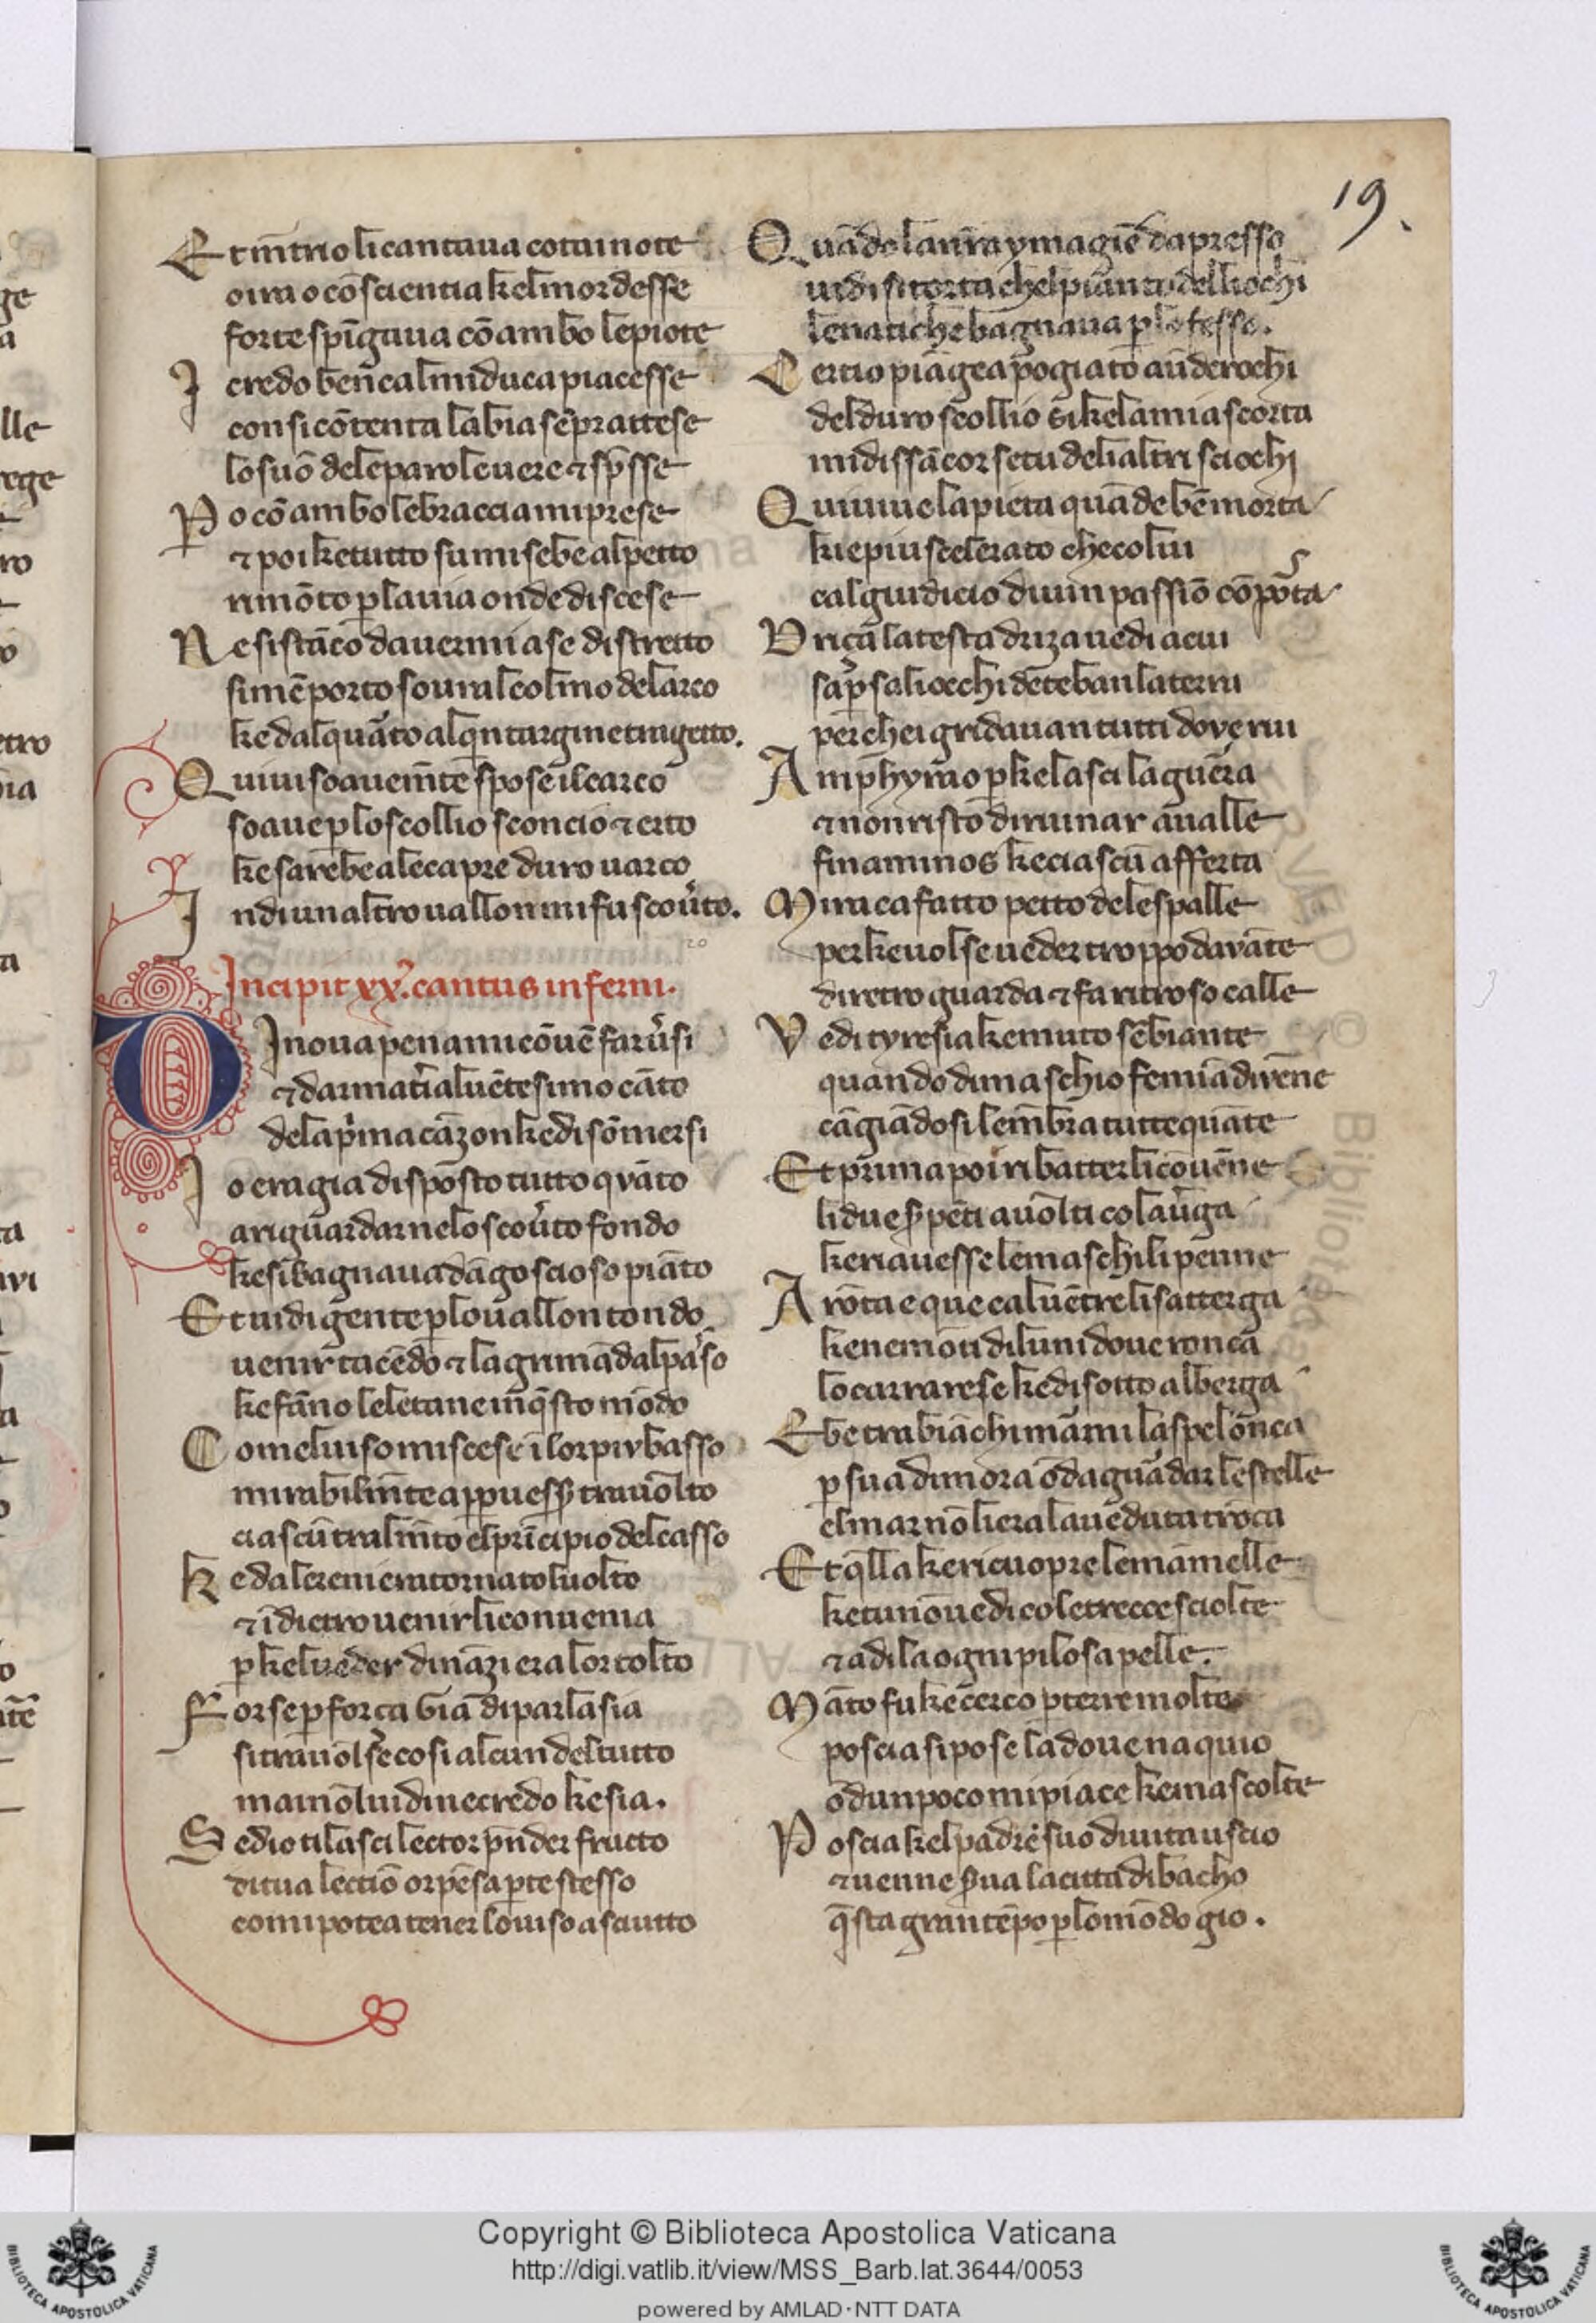 19.
Et mētrio li cantaua cotai note
o ira o cōscientia kel mordesse
forte spīgaua cō ambo le piote
I credo bene cal mi duca piacesse
con si cōtenta labia sēpr attese
lo suō dele parole uere ⁊ sp̄sse
P o cō ambo le braccia mi prese
⁊ poi ke tutto su mi sebe al petto
rimōto ꝑ la uia onde discese
N e si stāco dauermi a se distretto
si mē porto soural colmo delarco
ke dal quāto al qⁿnt argine tragetto.
Q uiui soauemte spose il carco
soaue ꝑ lo scollio sconcio ⁊ erto
ke sarebe ale capre duro uarco
I ndi un altro uallon mi fu scouto.
20
Incipit xx. cantus inferni.
D I noua pena mi cōuē far u̓si
⁊ dar mat̓ia al uētesimo cāto
dela p̓ma cāzon ke di sōmersi
I o era gia disposto tutto qvāto
a riguardar nelo scou̓to fondo
ke si bagnaua dāgoscioso piāto
Et uidi gente ꝑ lo uallon tondo
uenir tacēdo ⁊ lagrimā dal passo
ke fāno le letane in q̄sto mōdo
C omel uiso mi scese ī lor piu basso
mirabilmte apparue ess̓ trauolto
ciascū tral mēto el prīcipio del casso
K e dale reni era tornatol uolto
⁊ īdietro uenir li conuenia
ꝑ kel ueder dināzi era lor tolto
F orse ꝑ forca gia di parlasia
si trauolse cosi alcun del tutto
ma io nōl uidi ne credo ke sia.
S e dio ti lasci lector p̄nder fructo
di tua lectiō or pēsa ꝑ te stesso
comi potea tener lo uiso asciutto
Q uādo la nr̄a ymagiē da presso
uidi si torta chel pianto delli ochi
le natiche bagnaua ꝑ lo fesso.
C erto piāgea pogiato a ūde rochi
del duro scollio si ke la mia scorta
mi disse ācor se tu de li altri sciochi
Q ui uiue la pieta quāde bē morta
ki e piu scelerato che colui
cal giudicio diuin passiō cōporta
D riçā la testa driza uedi a cui
sap̓sa li occhi de tebani la terra
per che i gridauan tutti doue rui
A mphyrao ꝑ ke lasci la guerra
⁊ non ristō di ruinar a ualle
fin a minos ke ciascū afferra
M ira ca fatto petto dele spalle
per ke uolse ueder troppo dauāte
diretro guarda ⁊ fa ritroso calle
V edi tyresia ke muto sēbiante
quando di maschio femīa diuēne
cāgiādosi le mēbra tutte quāte
Et prima poi ribatter li cōuēne
li due s̓pēti auolti co la u̓ga
ke riauesse le maschili penne
A rōta e que cal uētre li satterga
ke ne mōti di luni doue ronca
lo carrarese ke di sotto alberga
E be tra biāchi marmi la spelonca
ꝑ sua dimora ōda guardar le stelle
el mar nō li era la ueduta troca
Et q̄lla ke ricuopre le mamelle
ke tu nō uedi co le trecce sciolte
⁊ a di la ogni pilosa pelle.
M āto fu ke cerco ꝑ terre molte
poscia si pose la doue naquio
ōd un poco mi piace ke mascolte
P oscia kel padre suo di uita uscio
⁊ uenne s̓ua la citta di bacho
q̄sta gran tēpo ꝑ lo mōdo gio.
Copyright © Biblioteca Apostolica Vaticana
http://digi.vatlib.it/view/MSS_Barb.lat.3644/0053
powered by AMLAD·NTT DATA
BIBLIOTECA APOSTOLICA VATICANA
BIBLIOTECA APOSTOLICA VATICANA